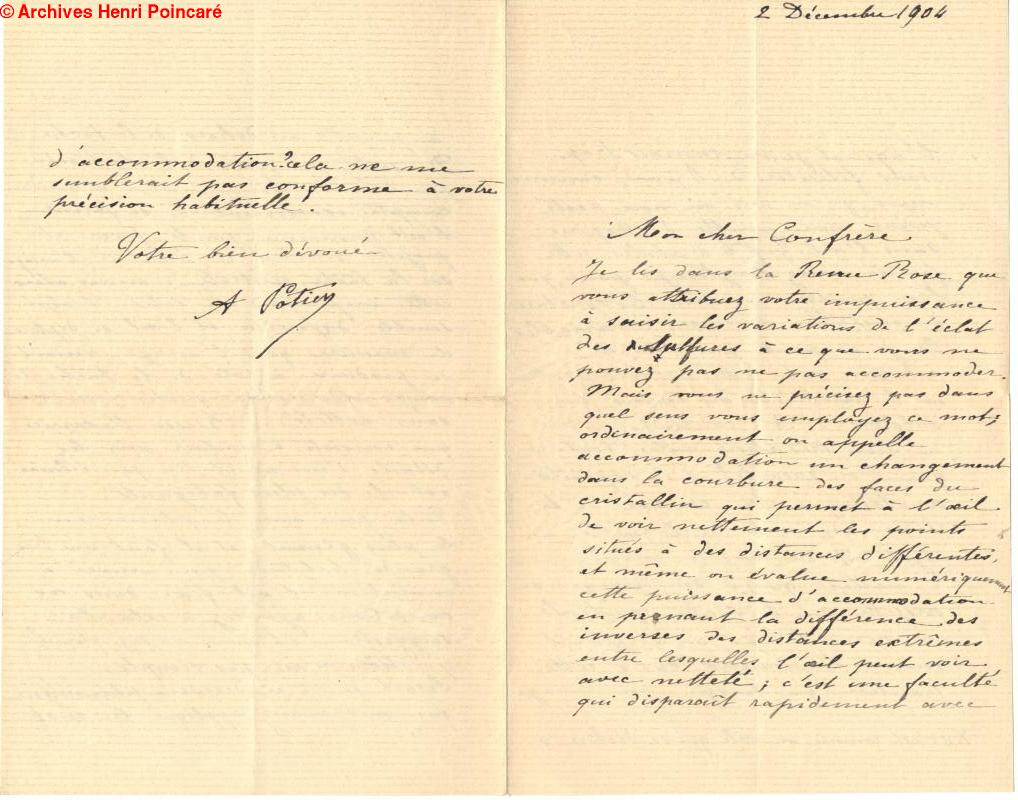 © Archives Henri Poincaré
2 Décembre 1904
Mon cher Confrère
Je lis dans la Revue Rose que
vous attribuez votre impuissance
à saisir les variations de l'éclat
des sulfures à ce que vous ne
pouvez pas ne pas accommoder.
Mais vous ne précisez pas dans
quel sens vous employez ce mot;
ordinairement on appelle
accommodation un changement
dans la courbure des faces du
cristallin qui permet à l'œil
de voir nettement les points
situés à des distances différentes,
et même on évalue numériquement
cette puissance d'accommodation
en prenant la différence des
inverses des distances extrêmes
entre lesquelles l'œil peut voir
avec netteté; c'est une faculté
qui disparaît rapidement avec
d'accommodation? cela ne me
semblerait pas conforme à votre
précision habituelle.
Votre bien dévoué
A Potier